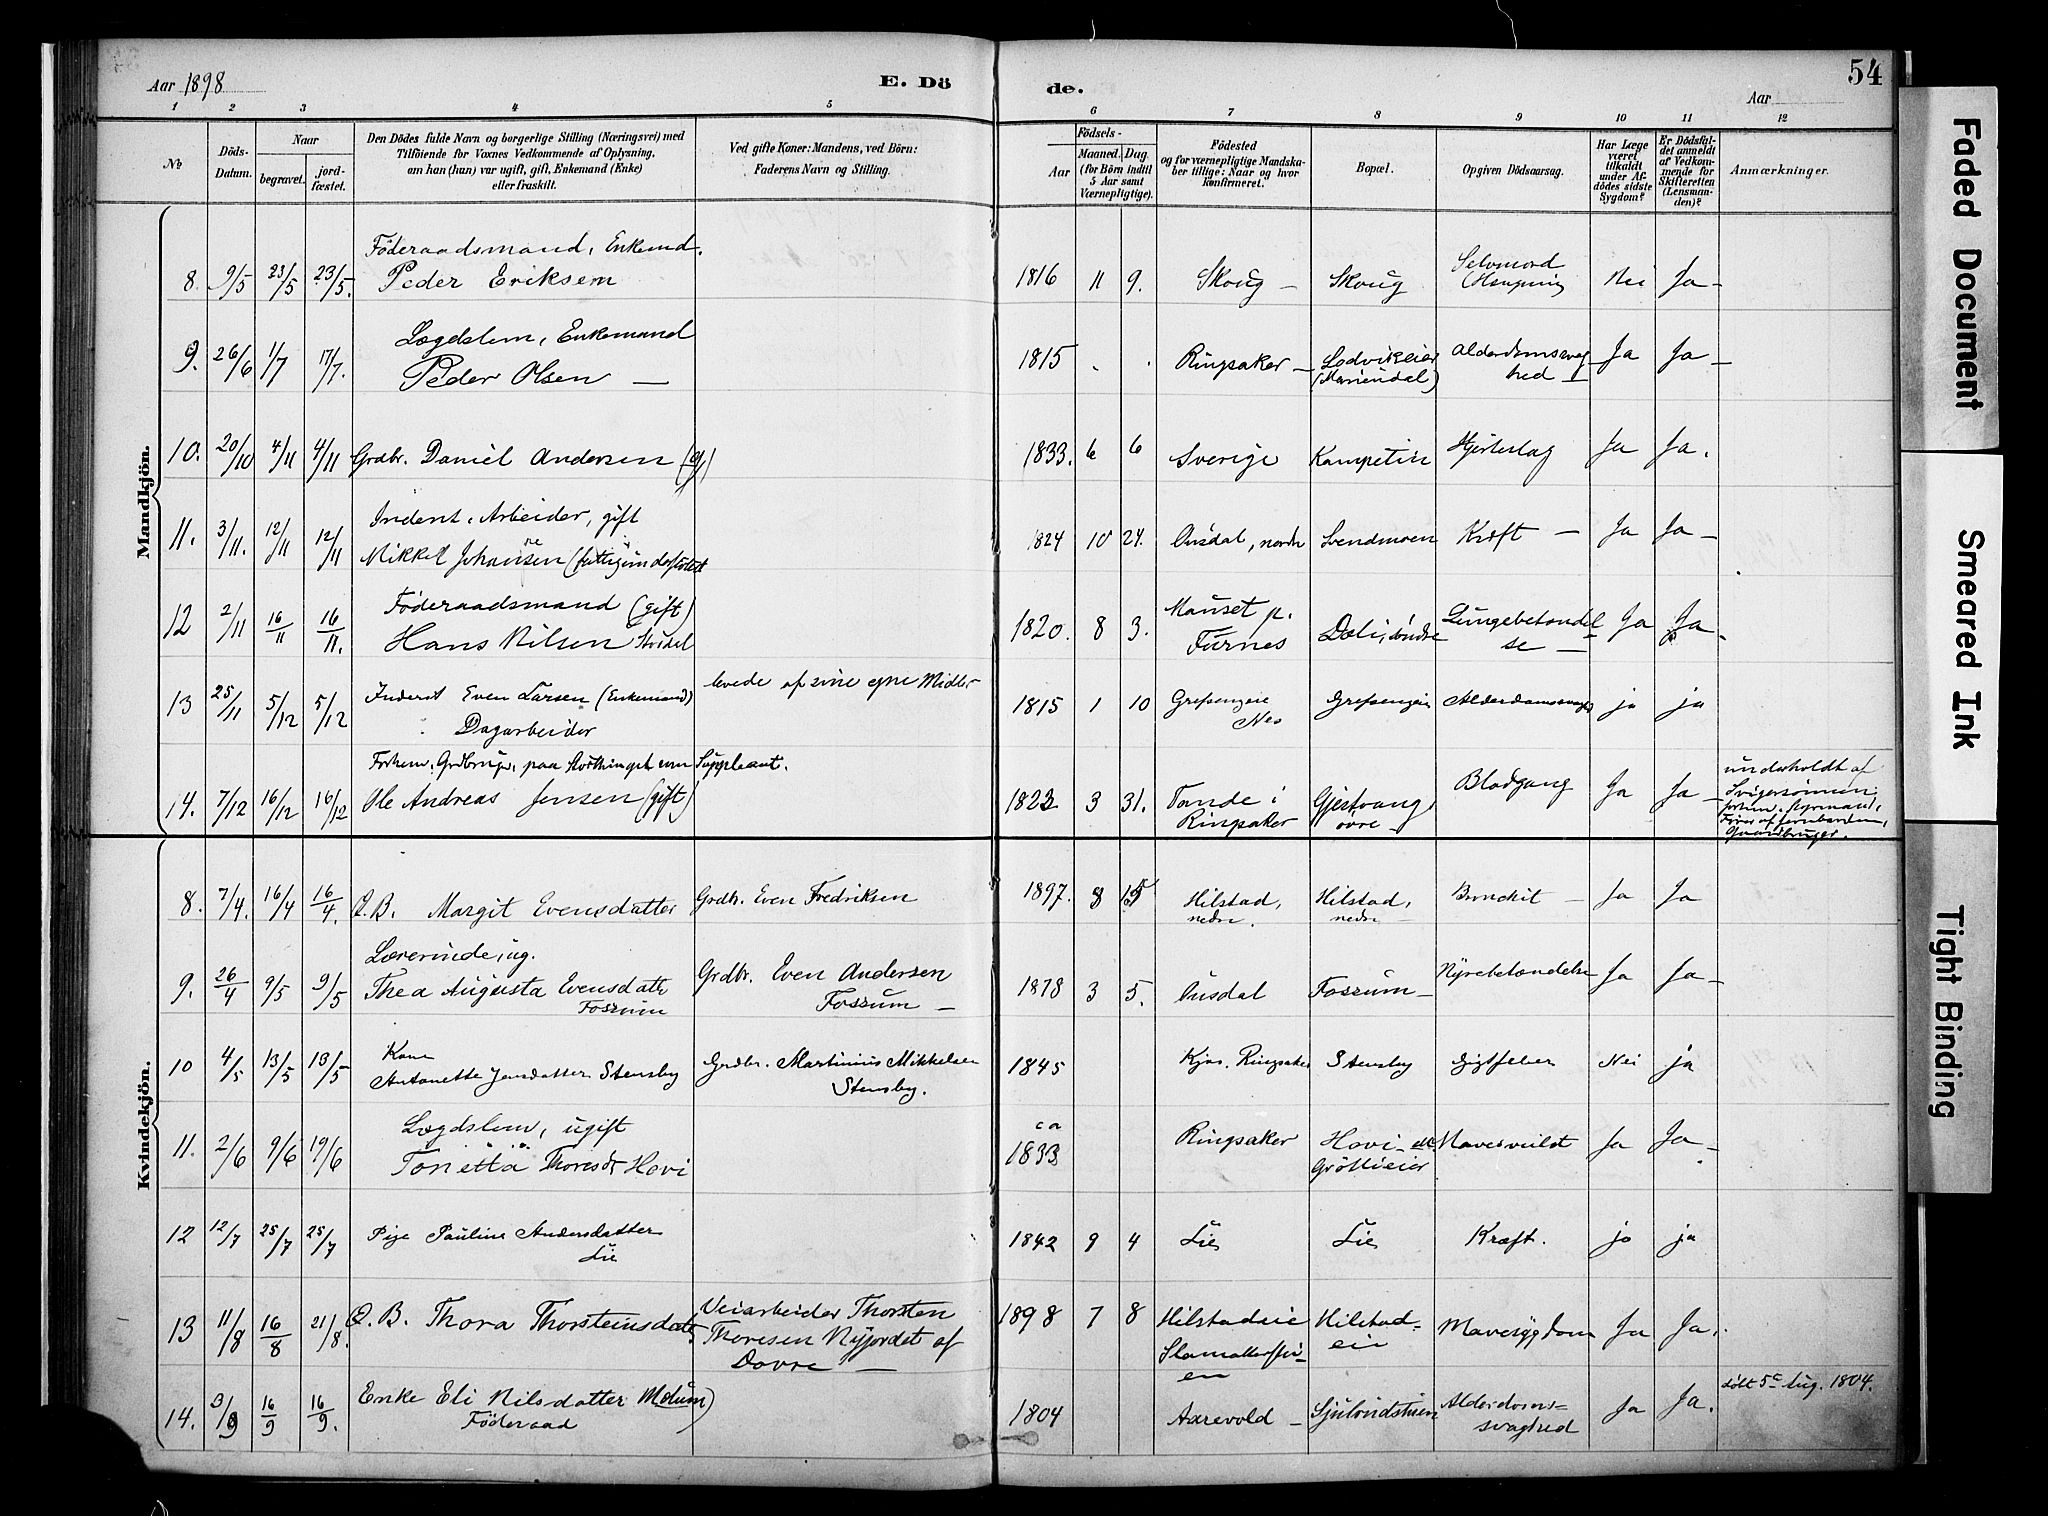 Aar 1898
E. Dö
de.
54
Aar
1 2 3 4 5 6 7 8 9 10 11 12
No
Döds-
Datum.
Naar
begravet.
jord-
fæstet.
Den Dödes fulde Navn og borgerlige Stilling (Næringsvei) med
Tilföiende for Voxnes Vedkommende af Oplysning,
om han (hun) var ugift, gift, Enkemand (Enke)
eller fraskilt.
Ved gifte Koner: Mandens, ved Börn:
Faderens Navn og Stilling.
Födsels-
Aar
Maaned. Dag.
(for Börn indtil
5 Aar samt
Værnepligtige).
Födested
og for værnepligtige Mandska-
ber tillige: Naar og hvor
konfirmeret.
Bopæl.
Opgiven Dödsaarsag.
Har Læge
været
tilkaldt
under Af-
dödes sidste
Sygdom?
Er Dödsfal-
det anmeldt
af Vedkom-
mende for
Skifteretten
(Lensman-
den)?
Anmærkninger.
Mandkjön.
Föderaadsmand, Enkemd.
8. 9/5 23/5 23/5. Peder Eriksen 1816 11 9. Skoug – Skoug Selvmord Nei Ja –
Lægdslem, Enkemand
9. 26/6 1/7 17/7. Peder Olsen — 1815 Ringsaker – Lodvikeier Alderdomssvag Ja Ja –
(Mariendal) hed –
10. 20/10 4/11 4/11 Grdbr. Daniel Andersen (g) 1833. 6 6 Sverige Kampetin Hjerteslag Ja Ja.
Inderst, Arbeider, gift
11. 3/11. 12/11 12/11 Mikkel Johansen 1824 10 24. nordre Svendmoen Kræft – Ja Ja –
Föderaadsmand (gift)
12 2/11 16/11 16/11. Hans Nilsen 1820. 8 3. Furnes Dæli, söndre Lungebetændel Ja Ja –
se –
13 25/11 5/12 5/12 Inderst Even Larsen (Enkemand) levede af sine egne Midler 1815 1 10 Alderdomssvagh ja ja
Dagarbeider Nes
Forhen. Grdbruger, paa Storthinget som Suppleant.
14. 7/12 16/12 16/12 Ole Andreas Jensen (gift) 1823 3 31. Tande i Gjestvang Blodgang Ja Ja –
Ringsaker övre –
underholdt af
Svigersönnen
Gaardbruger.
Kvindekjön.
8. 7/4. 16/4 16/4. Æ.B. Margit Evensdatter Grdbr. Even Fredriksen 1897. 8 15 Hilstad, Hilstad, Bronchit – Ja Ja
nedre. nedre –
Lærerinde, ug.
9. 26/4 9/5 9/5 Thea Augusta Evensdatter Grdbr. Even Andersen 1878 3 5. Fossum – Nyrebetændelse Ja Ja –
Fossum Fossum –
Kone
10 4/5 13/5 13/5 Antonette Jensdatter Stensby Grdbr. Martinius Mikkelsen 1845 Ringsaker Stensby Gigtfeber Nei ja
Stensby.
Lægdslem, ugift ca
11. 2/6 9/6 19/6 Thoresdr Hovi 1833 Ringsaker Hovi Ja Ja –
12 12/7 25/7 25/7 Pige Pauline Andersdatter 1842 9 4 Lie Lie Kræft. ja ja
Lie
13 11/8 16/8 21/8. Æ.B. Thora Thorsteinsdatter Veiarbeider Thorsten 1898 7 8 Hilstadeie Hilstad- Mavesygdom Ja Ja.
Thoresen Nyjordet af eie
Dovre —
Enke Eli Nilsdatter Melum
14. 3/9 16/9 16/9. Föderaad 1804 Aarevold – Alderdoms- Ja Ja. född 5te Aug. 1804.
svaghed
Faded Document
Smeared Ink
Tight Binding